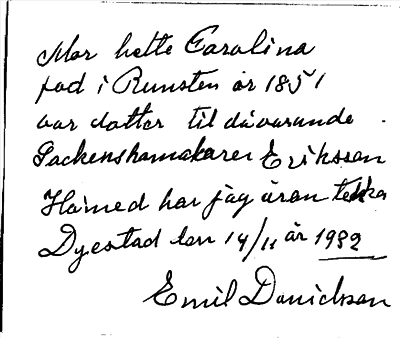 Mor hette Carolina
född i Runsten år 1851
var dotter til dåvarande
Sockenskomakaren Eriksson
Härmed har jag äran teckna
Dyestad den 14/11 år 1932
Emil Danielsson